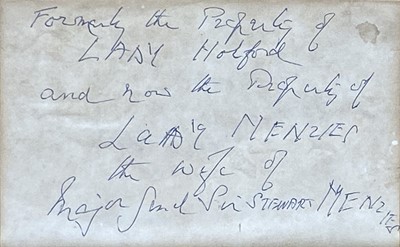 Formerly the Property of
LADY Holford
and now the Property of
LADY MENZIES
the wife of
Major Genl Sir STEWART MENZIES